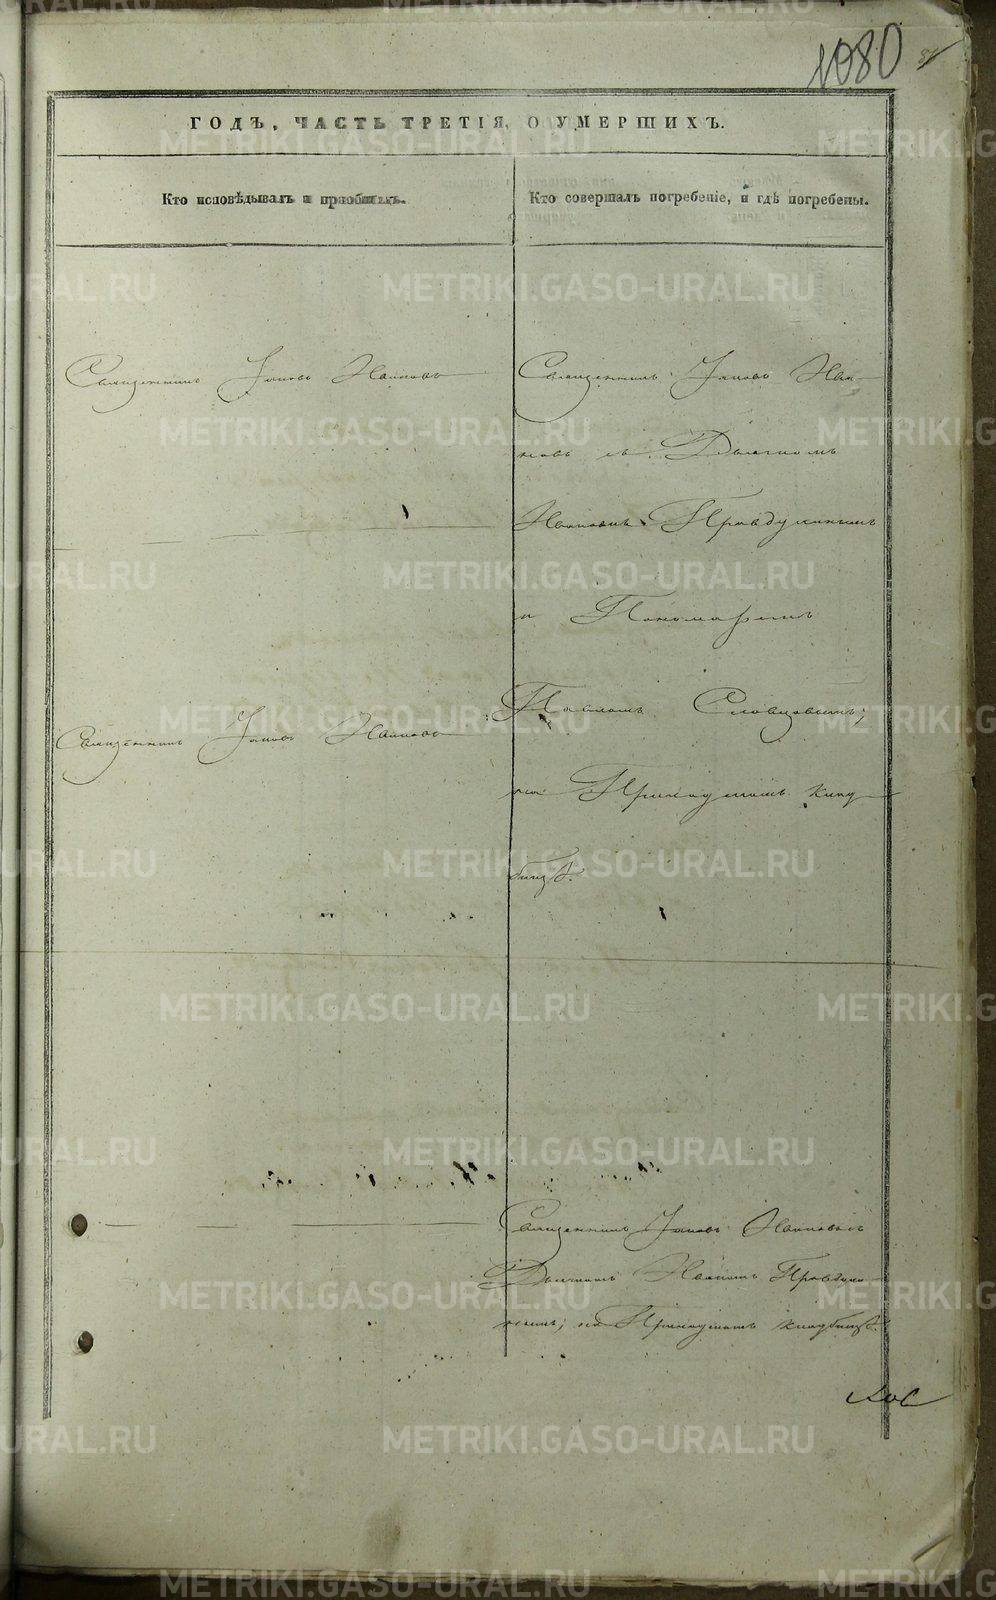 1080
81
ГОДЪ, ЧАСТЬ ТРЕТІЯ, О УМЕРШИХЪ.
Кто исповѣдывалъ и пріобщалъ.
Кто совершалъ погребеніе, и гдѣ погребены.
Священникъ Іаковъ Иванов
Священникъ Іаковъ Ива-
новъ съ Дьячкомъ
Иваномъ Правдухинымъ
и Пономаремъ
Павломъ Словцовымъ;
на Приходскомъ клад
бищѣ.
Священникъ Іаковъ Иванов
Священникъ Іаковъ Иванов
Дьячкомъ Иваномъ Правдухи-
нымъ; на Приходскомъ кладбищѣ.
METRIKI.GASO-URAL.RU